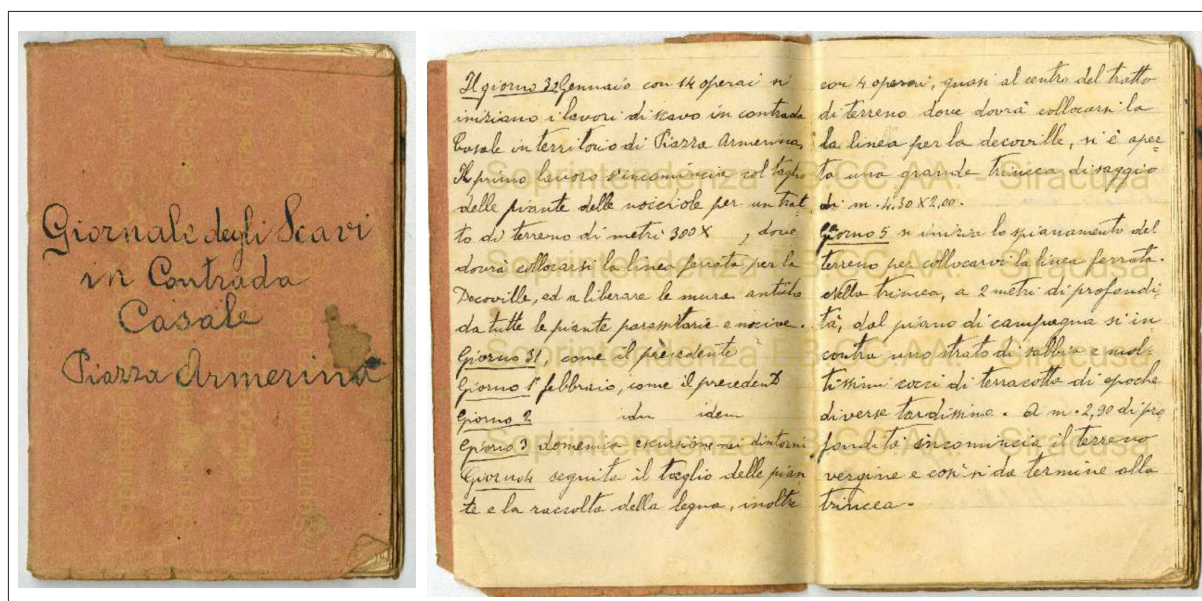 Giornale degli Scavi
in Contrada
Casale
Piazza Armerina
Il giorno Gennaio con 14 operai si
iniziano i lavori di scavo in contrada
Casale in territorio di Piazza Armerina.
Il primo lavoro s'incomincia col taglio
delle piante delle nocciole per un trat-
to di terreno di metri 300 X , dove
dovrà collocarsi la linea ferrata per la
Decoville, ed a liberare le mura antiche
da tutte le piante parassitarie e nocive.
Giorno 31, come il precedente
Giorno 1° febbraio, come il precedente
Giorno 2 idem idem
Giorno 3 domenica escursione nei dintorni
Giorno 4 seguita il taglio delle pian-
te e la raccolta della legna, inoltre
con 4 operai, quasi al centro del tratto
di terreno dove dovrà collocarsi la
la linea per la decoville, si è aper-
ta una grande trincea di saggio
di m. 4,30 X 2,00.
Giorno 5 si inizia lo spianamento del
terreno per collocarvi la linea ferrata.
Nella trincea, a 2 metri di profondi-
tà, dal piano di campagna si in
contra uno strato di sabbia e mol-
tissimi cocci di terracotta di epoche
diverse tardissime. A m. 2,90 di pro
fondità incomincia il terreno
vergine e così si da termine alla
trincea.
Soprintendenza BB.CC.AA. - Siracusa